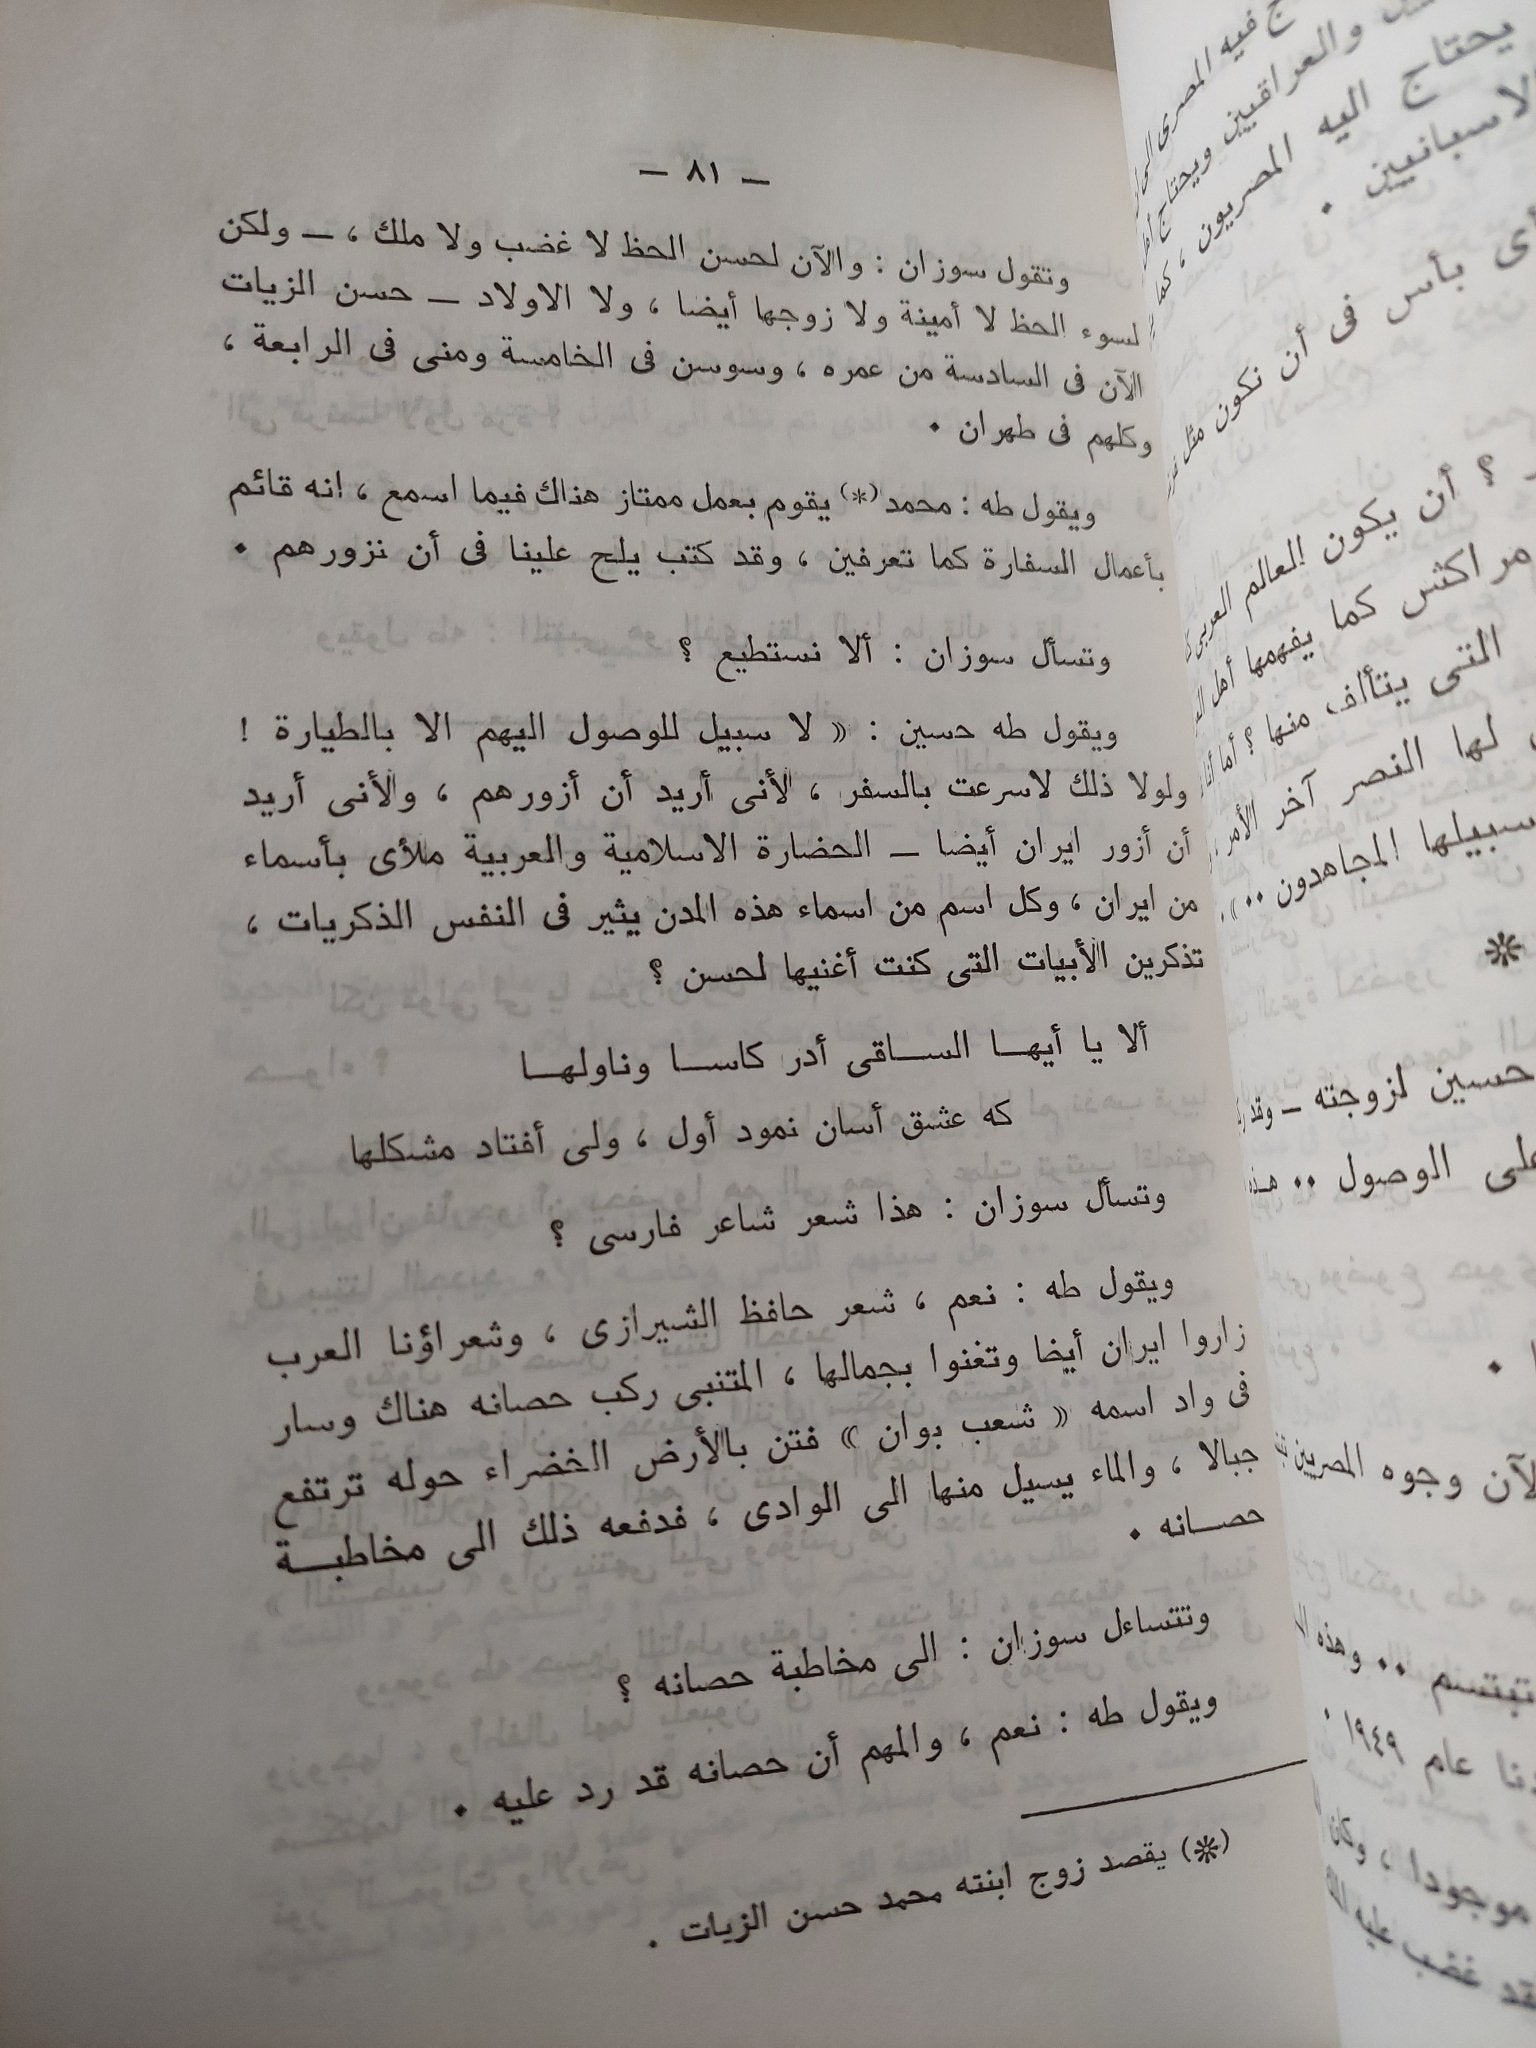 — ٨١ —
وتقول سوزان : والآن لحسن الحظ لا غضب ولا ملك ، — ولكن
لسوء الحظ لا أمينة ولا زوجها أيضا ، ولا الاولاد — حسن الزيات
الآن فى السادسة من عمره ، وسوسن فى الخامسة ومنى فى الرابعة ،
وكلهم فى طهران .
ويقول طه : محمد (*) يقوم بعمل ممتاز هناك فيما اسمع ، انه قائم
بأعمال السفارة كما تعرفين ، وقد كتب يلح علينا فى أن نزورهم .
وتسأل سوزان : ألا نستطيع ؟
ويقول طه حسين : « لا سبيل للوصول اليهم الا بالطيارة !
ولولا ذلك لاسرعت بالسفر ، لأنى أريد أن أزورهم ، ولأنى أريد
أن أزور ايران أيضا — الحضارة الاسلامية والعربية ملأى بأسماء
من ايران ، وكل اسم من اسماء هذه المدن يثير فى النفس الذكريات ،
تذكرين الأبيات التى كنت أغنيها لحسن ؟
ألا يا أيهـا الساقى أدر كاسا وناولهـا
كه عشق أسان نمود أول ، ولى أفتاد مشكلها
وتسأل سوزان : هذا شعر شاعر فارسى ؟
ويقول طه : نعم ، شعر حافظ الشيرازى ، وشعراؤنا العرب
زاروا ايران أيضا وتغنوا بجمالها ، المتنبى ركب حصانه هناك وسار
فى واد اسمه « شعب بوان » فتن بالأرض الخضراء حوله ترتفع
جبالا ، والماء يسيل منها الى الوادى ، فدفعه ذلك الى مخاطبـة
حصـانه .
وتتساءل سوزان : الى مخاطبة حصانه ؟
ويقول طه : نعم ، والمهم أن حصانه قد رد عليه .
(*) يقصد زوج ابنته محمد حسن الزيات .
فيه المصرى الى
والعراقيين ويحتاج
يحتاج اليه المصريون ، كما
الاسبانيين .
بأس فى أن نكون مثل
؟ أن يكون العالم العربى
مراكش كما يفهمها أهل
التى يتألف منها ؟ أما
لها النصر آخر الأمر
سبيلها المجاهدون .. » .
*
حسين لزوجته — وقد
على الوصول ..
الآن وجوه المصريين
تبتسم .. وهذه
عام ١٩٤٩ .
موجودا ، وكان
غضب عليه